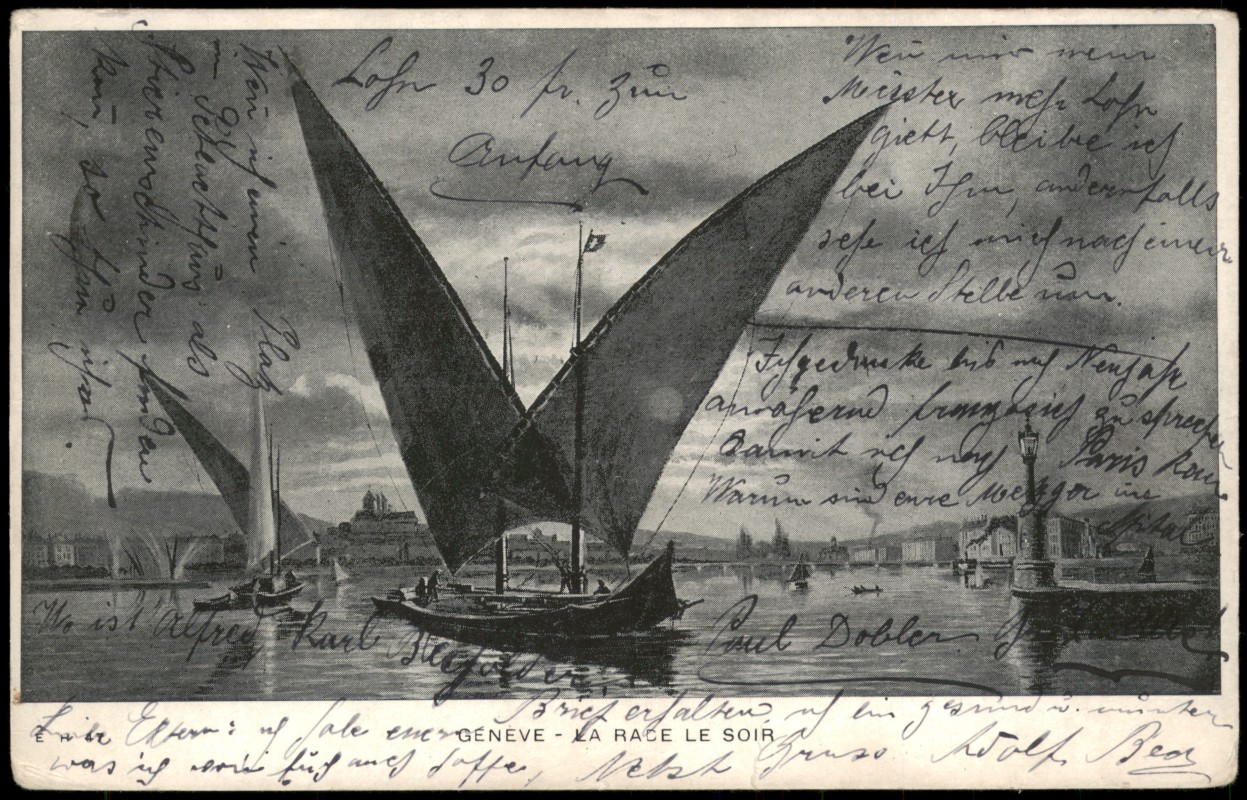 Lohn 30 fr. zum
Anfang
Wen mir mein
Meister mehr Lohn
giebt, bleibe ich
bei Ihm, andernfalls
sehe ich mich nach einer
anderen Stelle um.
Ich gedenke bis nach Neujahr
französich zu sprechen
damit ich nach Paris kan
Warum sind eure Metzger im
Spital
Wen ich einen Platz
in Schlachthaus als
finden
kan, so
Wo ist Alfred, Karl
Paul Dobler
Liebe Eltern: ich habe euren Brief erhalten, ich bin gesund u. munter
was ich von euch auch hoffe, Nebst Gruss Adolf
GENÈVE - LA RADE LE SOIR